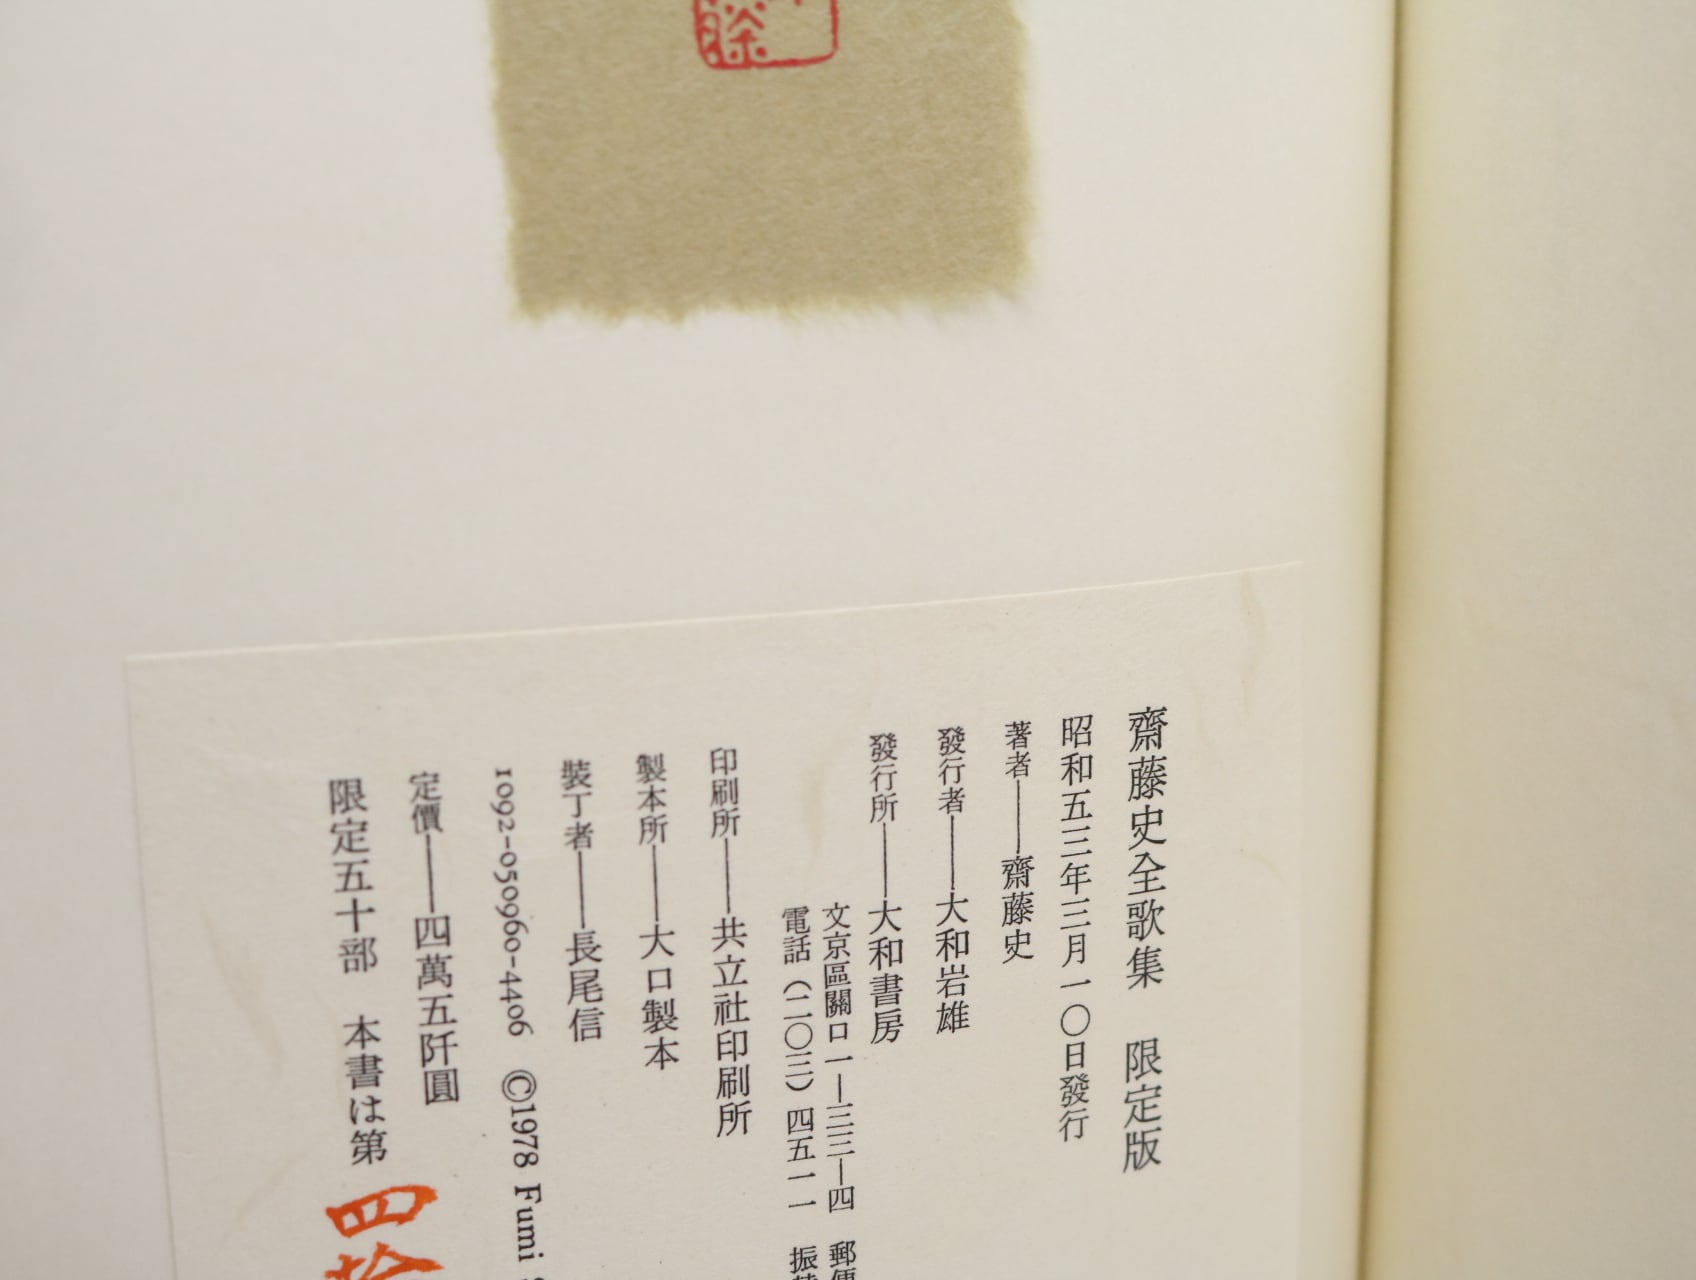 齋藤史全歌集　限定版
昭和五三年三月一〇日發行
著者――齋藤史
發行者――大和岩雄
發行所――大和書房
文京區關口一―三三―四　郵便
電話（二〇三）四五一一　振替
印刷所――共立社印刷所
製本所――大口製本
裝丁者――長尾信
1092-050960-4406　©1978 Fumi
定價――四萬五阡圓
限定五十部　本書は第四拾